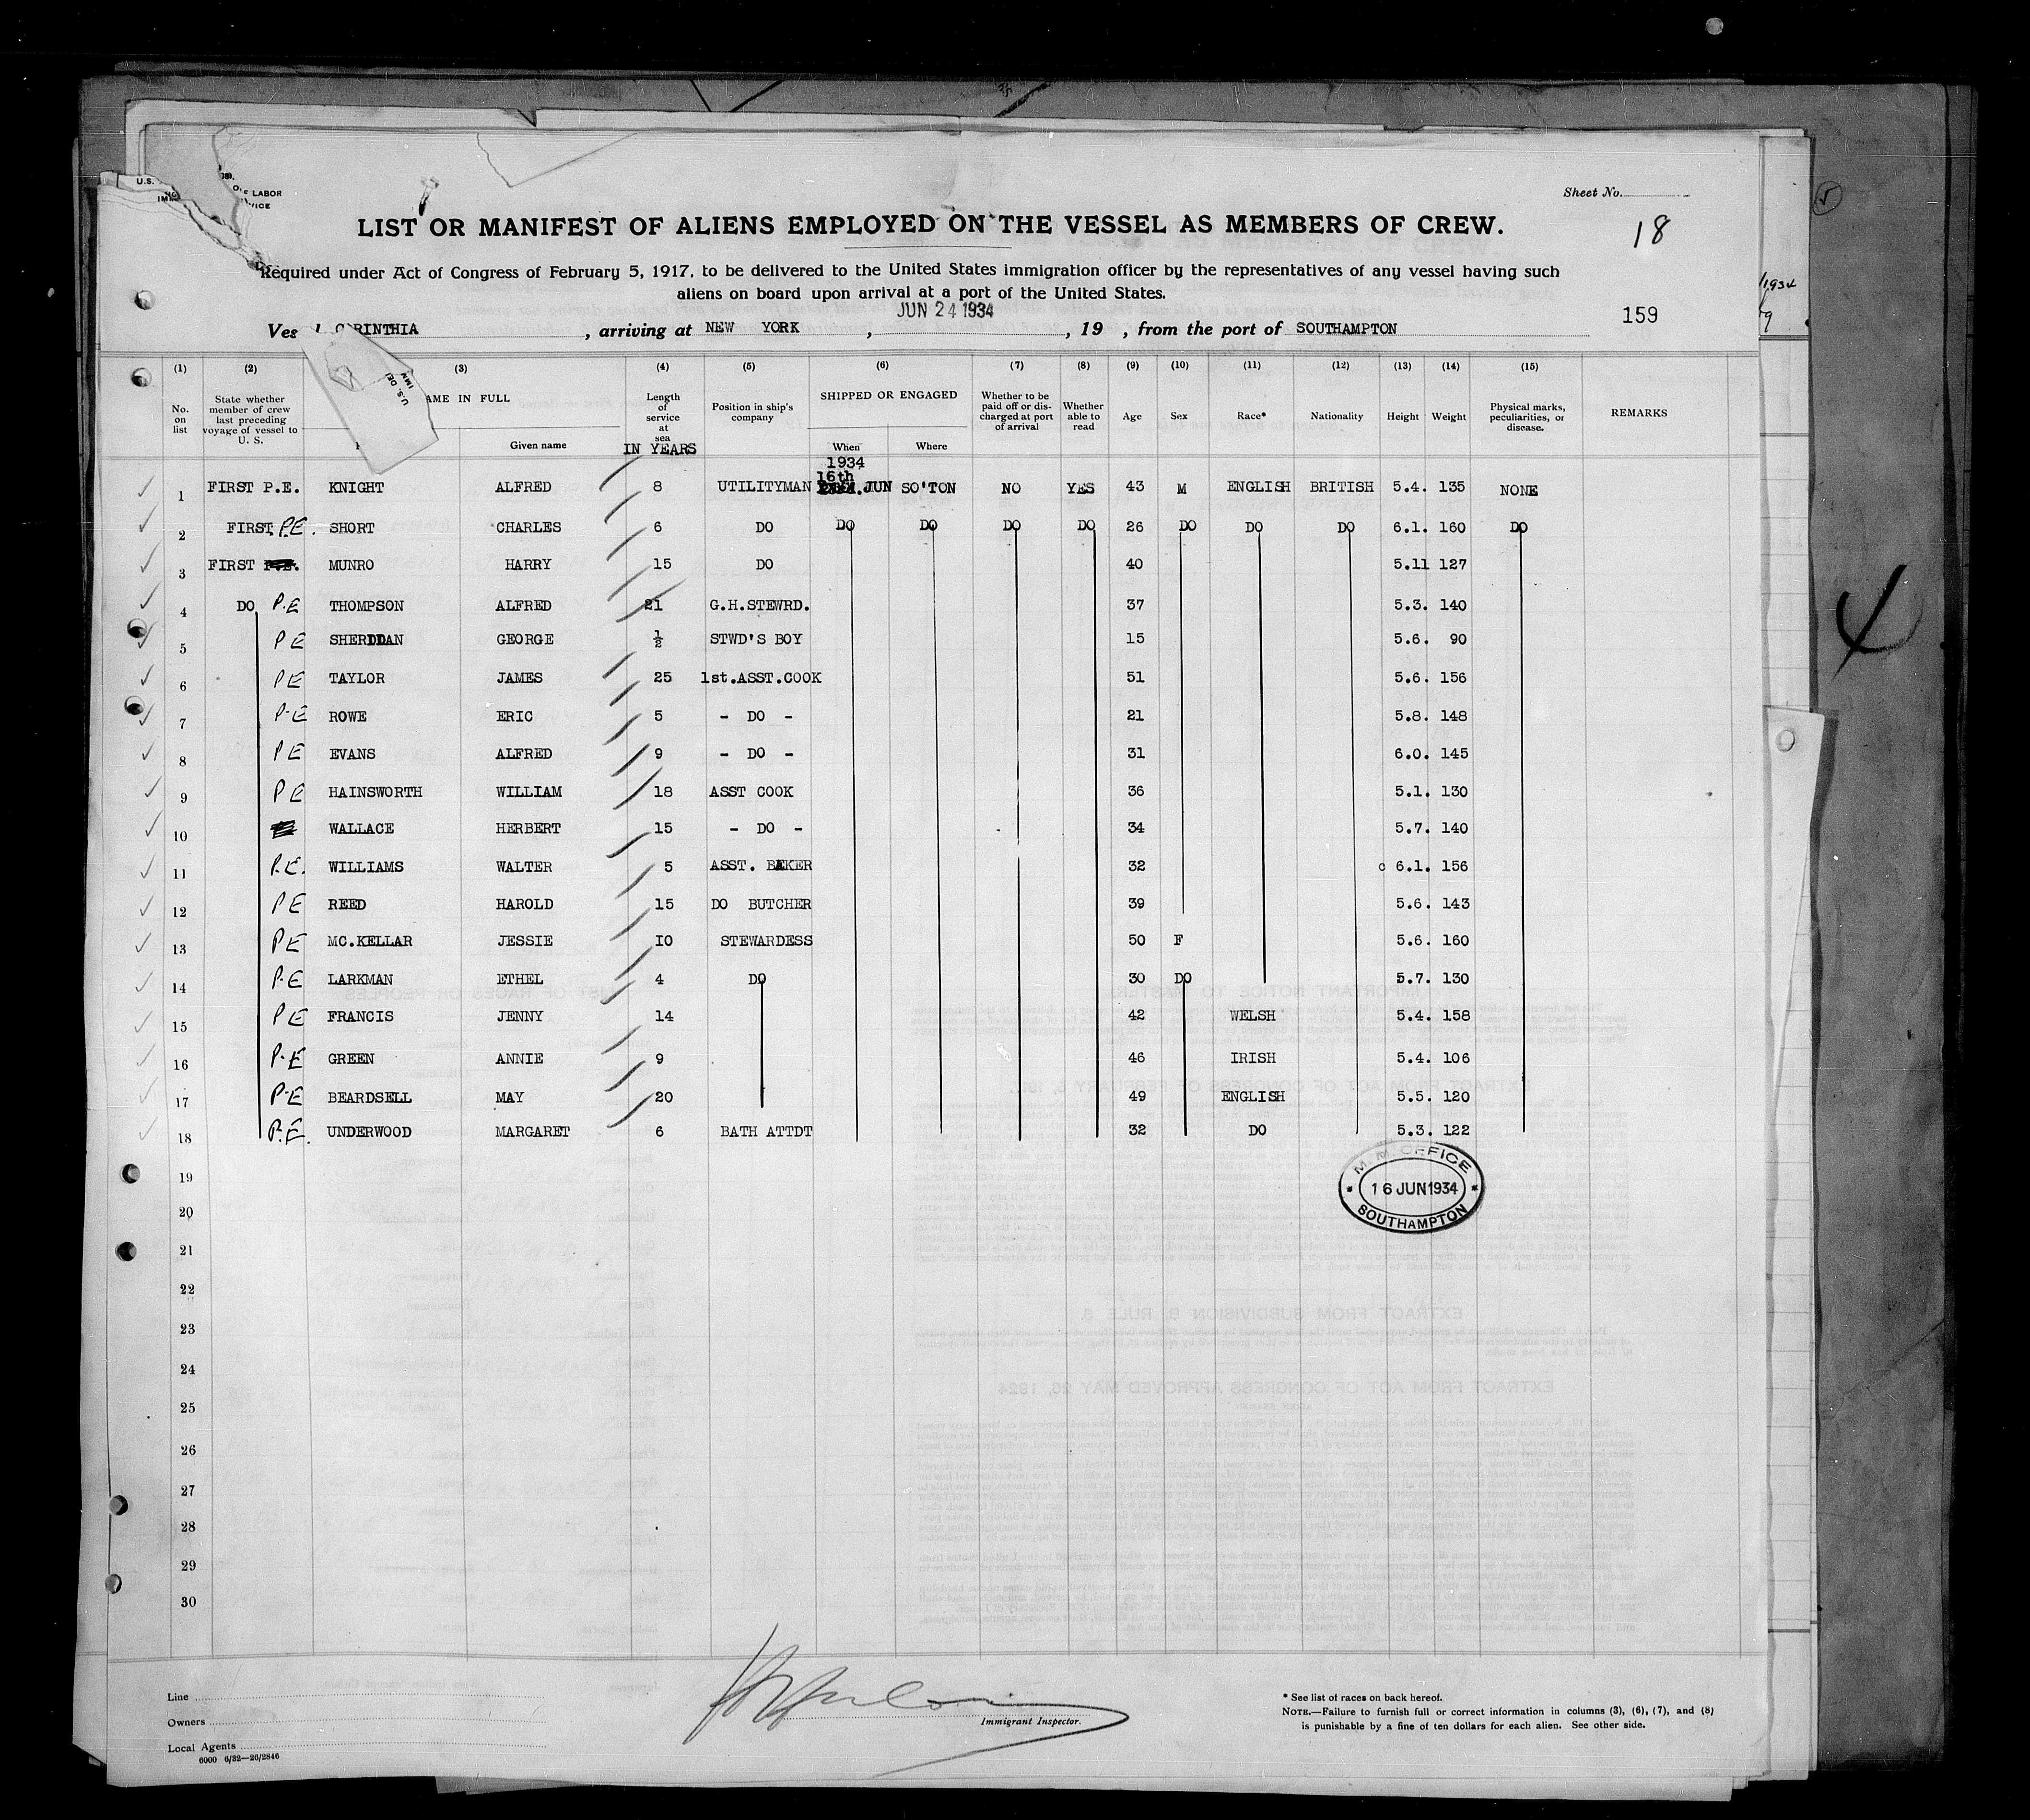 U.S.
OF LABOR
VICE
Sheet No.
LIST OR MANIFEST OF ALIENS EMPLOYED ON THE VESSEL AS MEMBERS OF CREW.
18
Required under Act of Congress of February 5, 1917, to be delivered to the United States immigration officer by the representatives of any vessel having such
aliens on board upon arrival at a port of the United States.
JUN 24 1934
159
Ves CARINTHIA , arriving at NEW YORK , , 19 , from the port of SOUTHAMPTON
(1) (2) (3) (4) (5) (6) (7) (8) (9) (10) (11) (12) (13) (14) (15)
No. on list
State whether member of crew last preceding voyage of vessel to U. S.
AME IN FULL
Given name
Length of service at sea
IN YEARS
Position in ship's company
SHIPPED OR ENGAGED
When
Where
Whether to be paid off or discharged at port of arrival
Whether able to read
Age
Sex
Race*
Nationality
Height
Weight
Physical marks, peculiarities, or disease.
REMARKS
1934
16th
1 FIRST P.E. KNIGHT ALFRED 8 UTILITYMAN JUN SO'TON NO YES 43 M ENGLISH BRITISH 5.4. 135 NONE
2 FIRST P.E. SHORT CHARLES 6 DO DO DO DO DO 26 DO DO DO 6.1. 160 DO
3 FIRST MUNRO HARRY 15 DO 40 5.11 127
4 DO P.E THOMPSON ALFRED 21 G.H.STEWRD. 37 5.3. 140
5 P E SHERDDAN GEORGE ½ STWD'S BOY 15 5.6. 90
6 P E TAYLOR JAMES 25 1st.ASST.COOK 51 5.6. 156
7 P-E ROWE ERIC 5 - DO - 21 5.8. 148
8 P E EVANS ALFRED 9 - DO - 31 6.0. 145
9 P E HAINSWORTH WILLIAM 18 ASST COOK 36 5.1. 130
10 WALLACE HERBERT 15 - DO - 34 5.7. 140
11 P.E. WILLIAMS WALTER 5 ASST. BAKER 32 c 6.1. 156
12 P E REED HAROLD 15 DO BUTCHER 39 5.6. 143
13 P E MC.KELLAR JESSIE IO STEWARDESS 50 F 5.6. 160
14 P-E LARKMAN ETHEL 4 DO 30 DO 5.7. 130
15 P E FRANCIS JENNY 14 42 WELSH 5.4. 158
16 P-E GREEN ANNIE 9 46 IRISH 5.4. 106
17 P-E BEARDSELL MAY 20 49 ENGLISH 5.5. 120
18 P.E. UNDERWOOD MARGARET 6 BATH ATTDT 32 DO 5.3. 122
M. M. OFFICE
16 JUN 1934
SOUTHAMPTON
19
20
21
22
23
24
25
26
27
28
29
30
Line
Owners
Local Agents
6000 6/32—26/2846
Immigrant Inspector.
* See list of races on back hereof.
NOTE.—Failure to furnish full or correct information in columns (3), (6), (7), and (8)
is punishable by a fine of ten dollars for each alien. See other side.